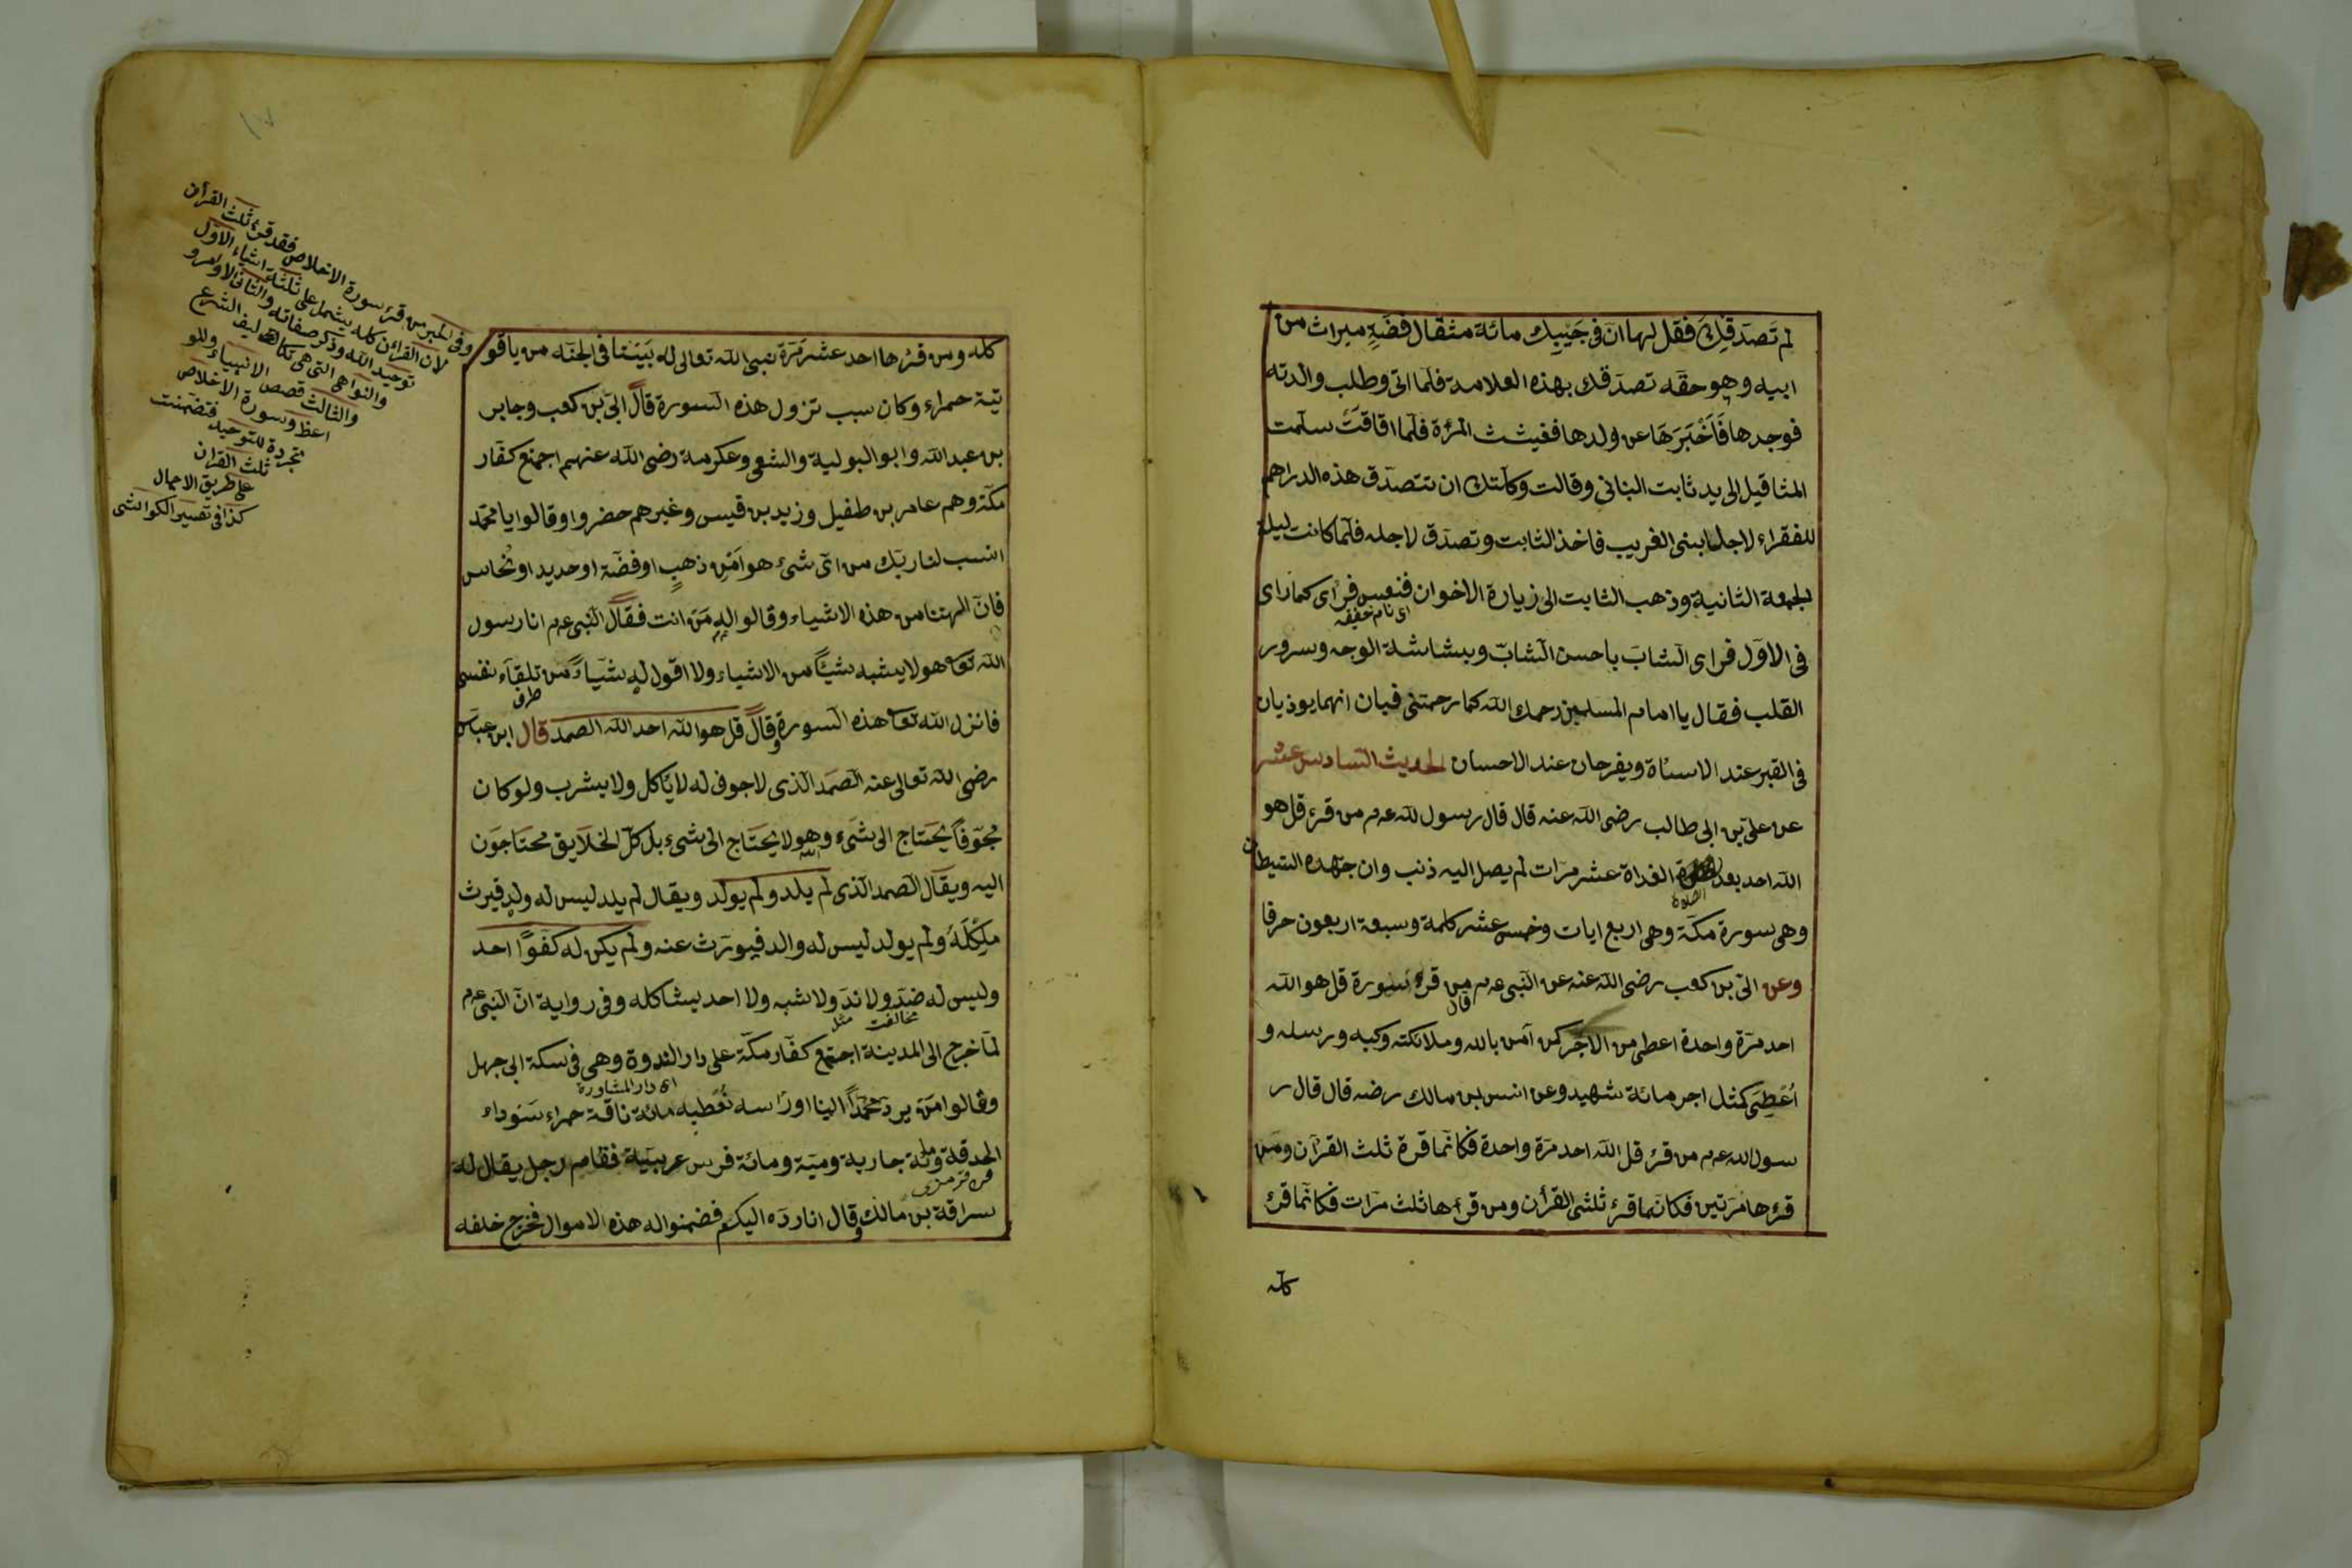 لم تصدقك فقل لها ان فى جيبك مائة مثقال فضة ميراث من
ابيه وهو حقه تصدقك بهذه العلامة فلما اتى وطلب والدته
فوجدها فَاَخْبَرَهَا عن ولدها فغيشت المرٔة فلما افاقت سلمت
المثاقيل الى يد ثابت البنانى وقالت وكلتك ان تتصدق هذه الدراهم
للفقراء لاجل ابنى الغريب فاخذ الثابت وتصدق لاجله فلما كانت ليلة
الجمعة الثانية وذهب الثابت الى زيارة الاخوان فنعس فراى كما راى
اى نام خفيفه
فى الاول فراى الشاب باحسن الشاب وببشاشة الوجه وسرور
القلب فقال يا امام المسلمين رحمك الله كما رحمتنى فبان انهما يوذيان
فى القبر عند الاساة ويفرحان عند الاحسان الحديث السادس عشر
عن على بن ابى طالب رضى الله عنه قال قال رسول لله عم من قرء قل هو
الله احد بعد الغداة عشر مرات لم يصل اليه ذنب وان جهده الشيطان
الصلوة
وهى سورة مكة وهى اربع ايات وخمس عشر كلمة وسبعة اربعون حرفا
وعن ابى بن كعب رضى الله عنه عن النبى عم قال من قرء سورة قل هو الله
احد مرة واحدة اعطى من الاجر كمن آمن بالله وملائكته وكتبه ورسله و
اُعْطِىَ كمثل اجر مائة شهيد وعن انس بن مالك رضه قال قال ر
سول الله عم من قرء قل الله احد مرة واحدة فكانما قرء ثلث القرآن ومن
قرءها مرتين فكانما قرء ثلثى القرأن ومن قرءها ثلث مرات فكانما قرء
كله
كله ومن قرءها احد عشر مرة بنى الله تعالى له بيتا فى الجنة من ياقو
تة حمراء وكان سبب نزول هذه السورة قال ابى بن كعب وجابر
بن عبد الله وابو العالية والشعبى وعكرمة رضى الله عنهم اجمع كفار
مكة وهم عامر بن طفيل وزيد بن قيس وغيرهم حضروا وقالوا يا محمد
انسب لنا ربك من اى شىء هو اَمِنْ ذهبٍ او فضة او حديد او نحاس
فان الهتنا من هذه الاشياء وقالوا له من انت فقال النبى عم انا رسول
الله تعا هو لا يشبه شيئًا من الاشياء ولا اقول له شيأ من تلقاء نفسى
طرف
فانزل الله تعا هذه السورة وقال قل هو الله احد الله الصمد قال ابن عباس
رضى الله تعالى عنه الصمد الذى لا جوف له لا ياكل ولا يشرب ولو كان
مجوفا يحتاج الى شىء وهو لا يحتاج الى شىء بل كل الخلايق محتاجون
اليه ويقال الصمد الذى لم يلد ولم يولد ويقال لم يلد ليس له ولد فيرث
ملكه ولم يولد ليس له والد فيورث عنه ولم يكن له كفوًا احد
وليس له ضد ولا ند ولا شبه ولا احد يشاكله وفى رواية ان النبى عم
مخالفت مثل
لما خرج الى المدينة اجتمع كفار مكة على دار الندوة وهى فى سكة ابى جهل
اى دار المشاورة
وقالوا من يرد محمدًا الينا او رأسه نُعْطيه مائة ناقة حمراء سوداء
الحدقة ومائة جارية رومية ومائة فرس عربية فقام رجل يقال له
سراقة بن مالك وقال انا رده اليكم فضمنوا له هذه الاموال فخرج خلفه
١٧
وفى الخبر من قرء سورة الاخلاص فقد قرء ثلث القرأن
لان القرأن كله يشمل على ثلثة اشياء الاول
توحيد الله وذكر صفاته والثانى الاوامر و
والنواهى التى هى تكاليف الشرع
والثالث قصص الانبياء وللو
اعظ وسورة الاخلاص
مجردة للتوحيد فتضمنت
ثلث القران
على طريق الاجمال
كذا فى تفسير الكواشى